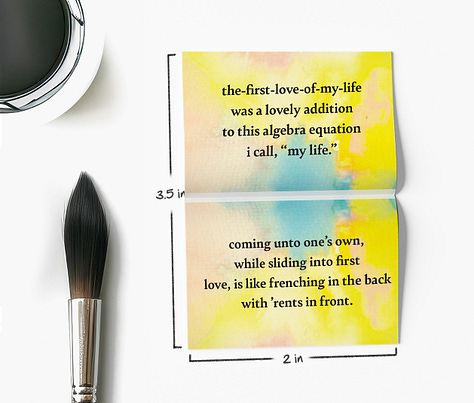 the-first-love-of-my-life
was a lovely addition
to this algebra equation
i call, “my life.”
3.5 in
coming unto one’s own,
while sliding into first
love, is like frenching in the back
with ’rents in front.
2 in